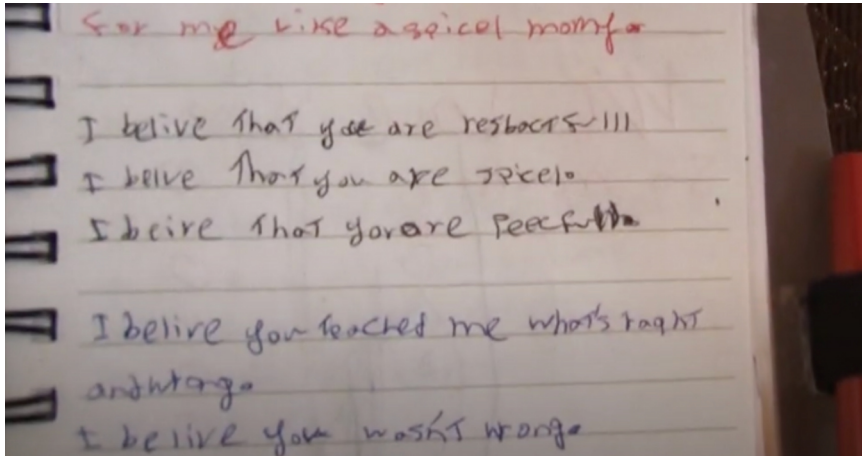 for me like a speicel mom for
I belive That you are resbactfulll
I belve That you are speicelo
I beire That you are Peecfull.
I belive you teached me what's raght
and wrong.
I belive you wosh't wrong.